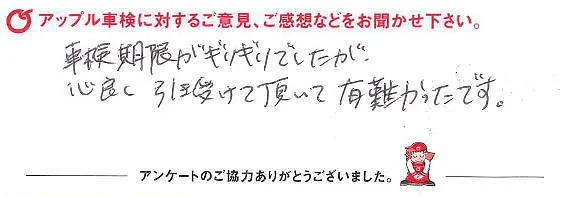 アップル車検に対するご意見、ご感想などをお聞かせ下さい。
車検期限がギリギリでしたが、
心良く引き受けて頂いて有難かったです。
アンケートのご協力ありがとうございました。